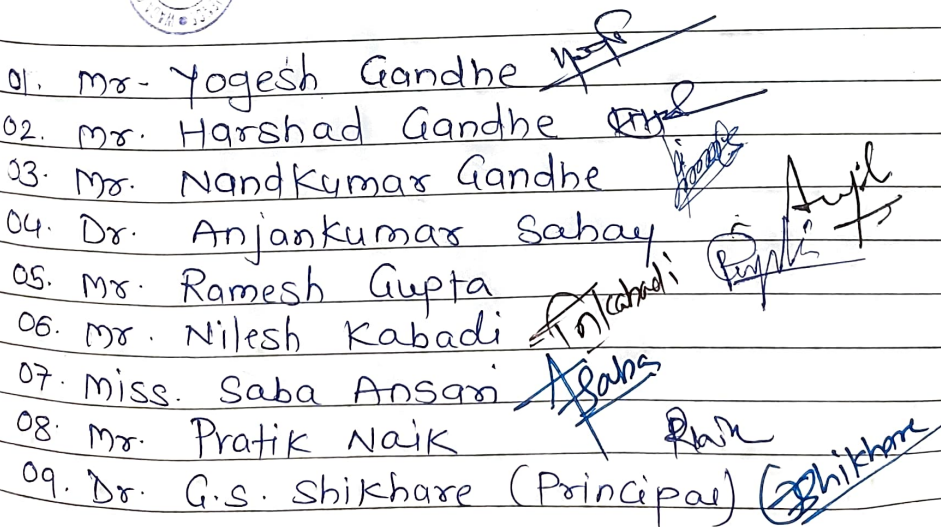 01. Mr- Yogesh Gandhe
02. Mr. Harshad Gandhe
03. Mr. Nandkumar Gandhe
04. Dr. Anjankumar Sahay
05. Mr. Ramesh Gupta
06. Mr. Nilesh Kabadi nkabadi
07. Miss. Saba Ansari Saba
08. Mr. Pratik Naik
09. Dr. G.S. Shikhare (Principal) GShikhare